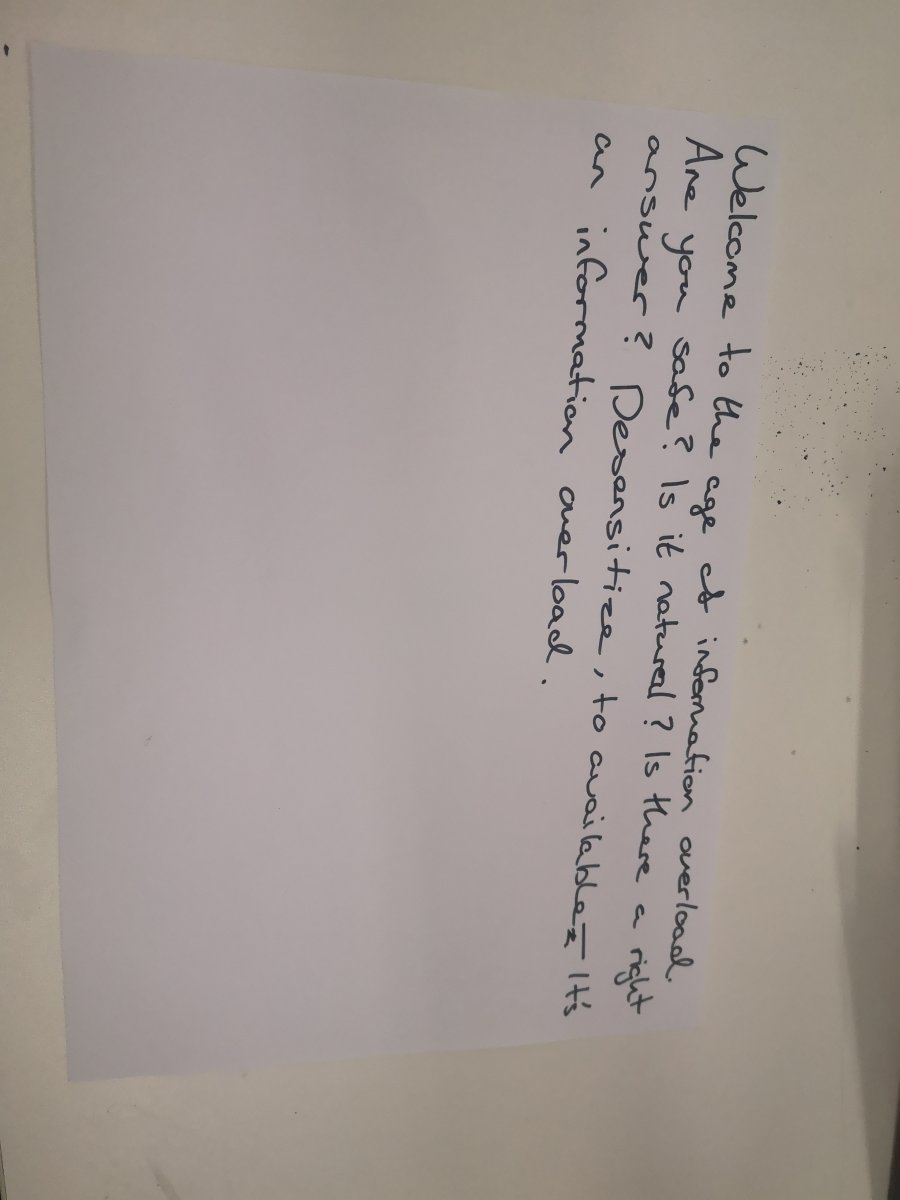 Welcome to the age of information overload.
Are you safe? Is it natural? Is there a right
answer? Desensitize, to available – It's
an information overload.